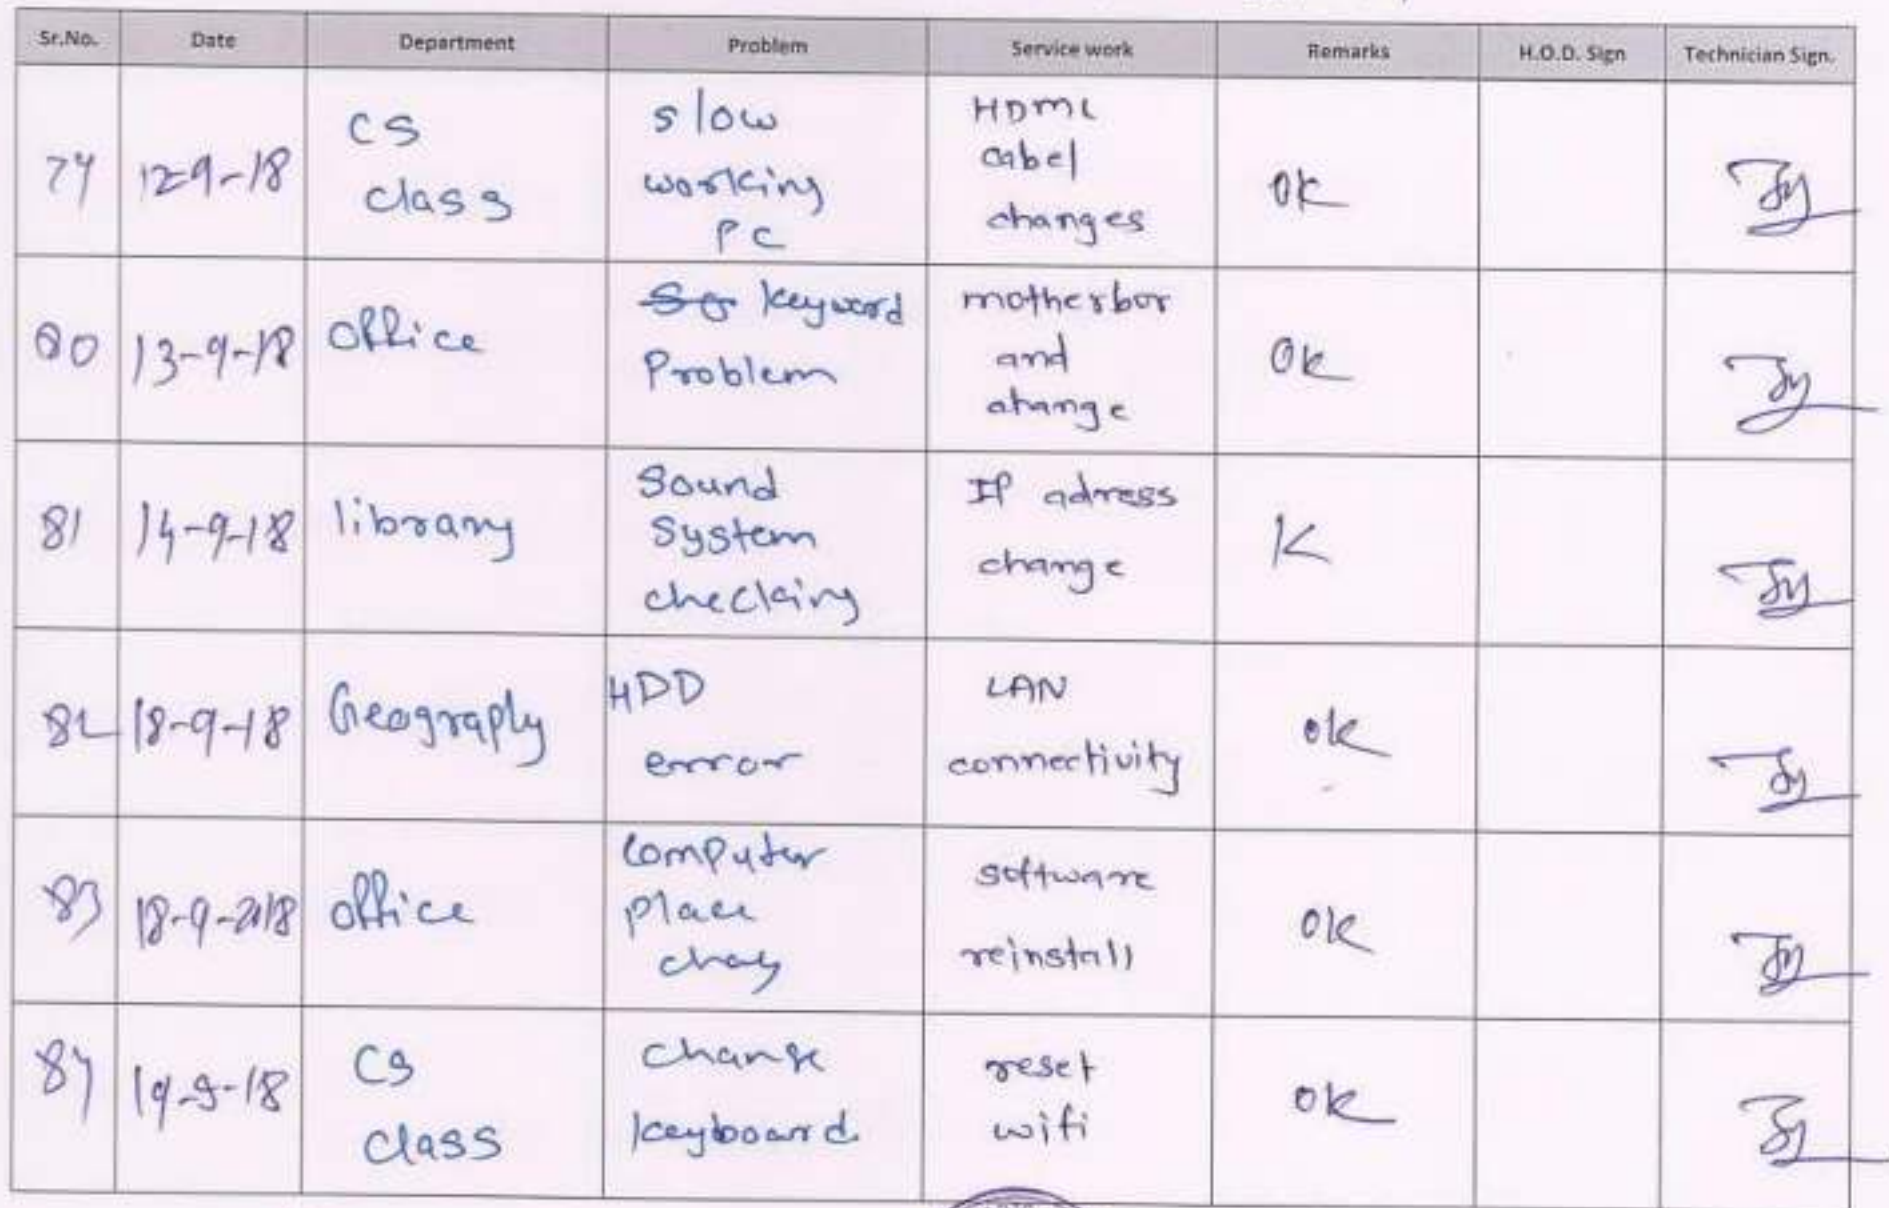 Sr.No. Date Department Problem Service work Remarks H.O.D. Sign Technician Sign.
79 12-9-18 CS class slow working PC HDMI cabel changes OK
80 13-9-18 office keyword Problem motherbor and change Ok
81 14-9-18 library Sound System checking IP adress change K
82 18-9-18 Geography HDD error LAN connectivity ok
83 18-9-2018 office Computer place software reinstall ok
84 19-9-18 CS class change keyboard reset wifi ok